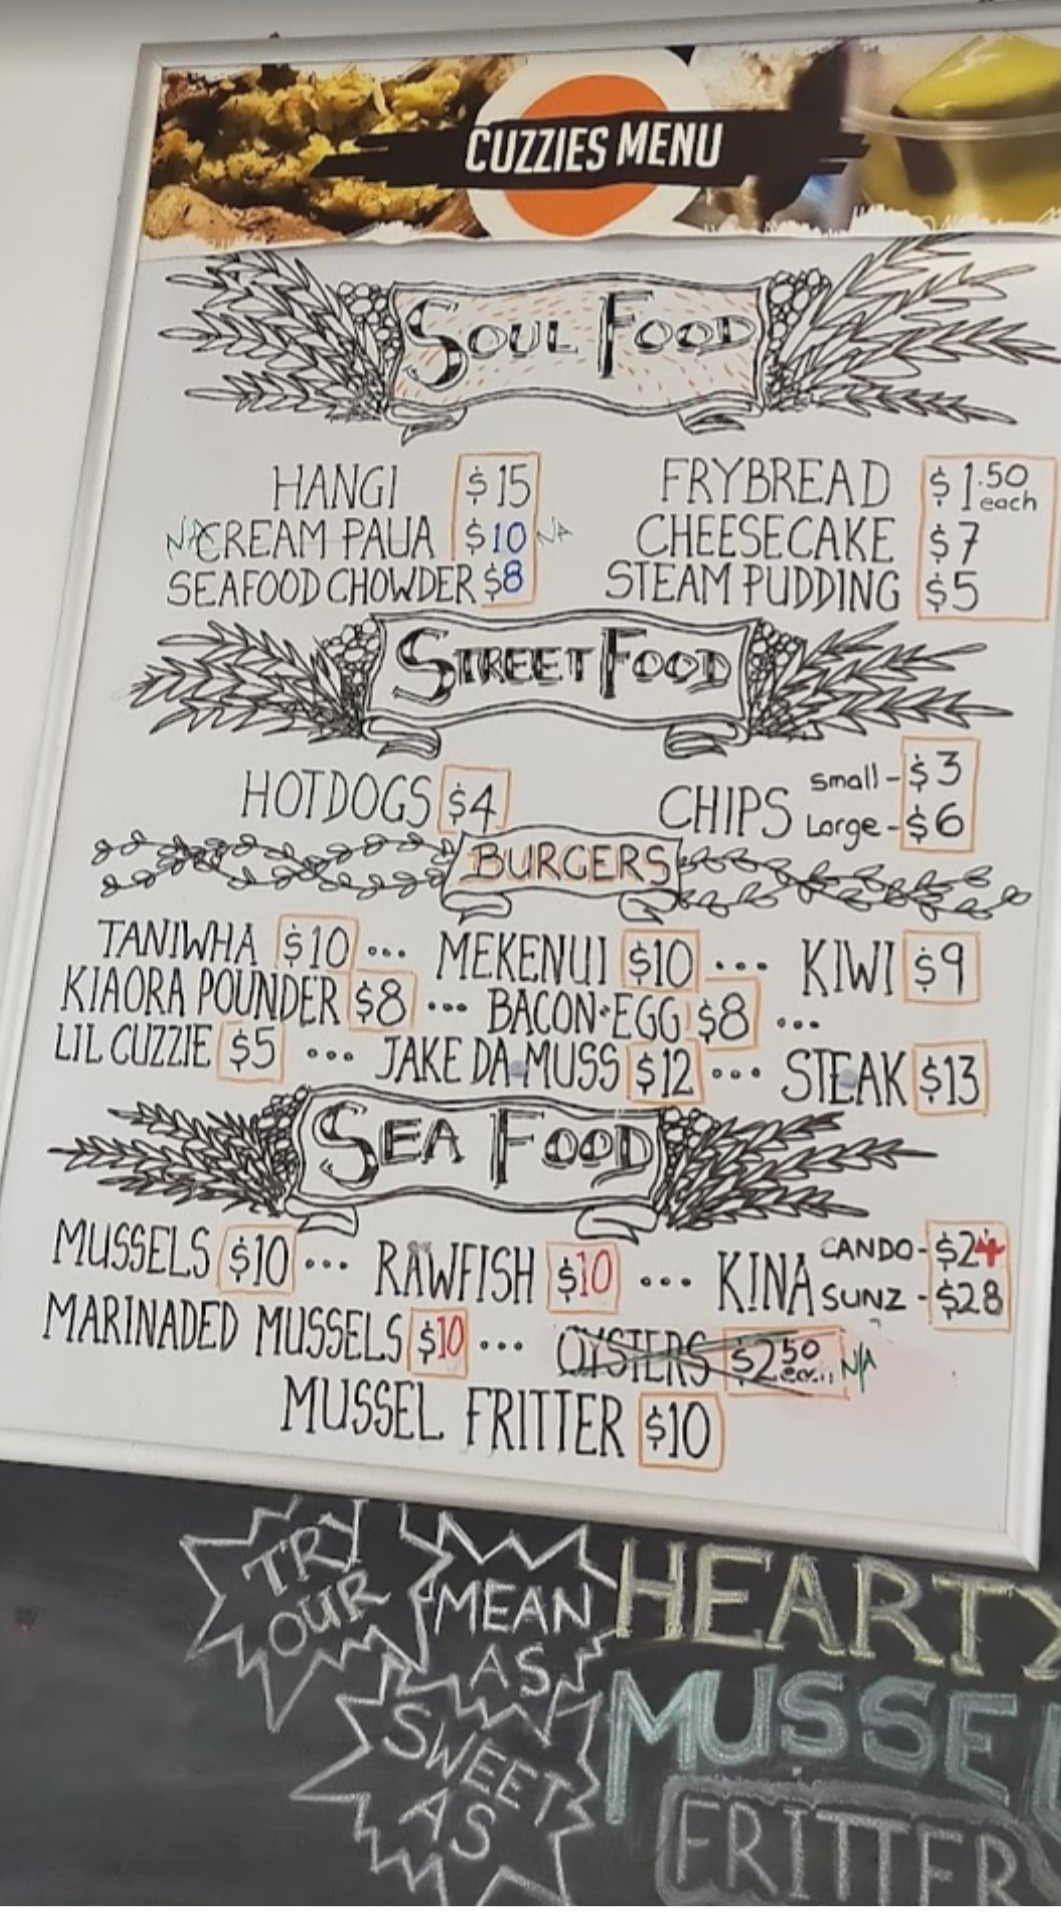 CUZZIES MENU
SOUL FOOD
HANGI $15
NA CREAM PAUA $10 NA
SEAFOOD CHOWDER $8
FRYBREAD $1.50 each
CHEESECAKE $7
STEAM PUDDING $5
STREET FOOD
HOTDOGS $4
CHIPS small - $3
Large - $6
BURGERS
TANIWHA $10 ... MEKENUI $10 ... KIWI $9
KIAORA POUNDER $8 ... BACON+EGG $8 ...
LIL CUZZIE $5 ... JAKE DA MUSS $12 ... STEAK $13
SEA FOOD
MUSSELS $10 ... RAWFISH $10 ... KINA CANDO - $24
SUNZ - $28
MARINADED MUSSELS $10 ... OYSTERS $2.50 N/A
MUSSEL FRITTER $10
TRY
OUR
MEAN
AS
SWEET
AS
HEARTY
MUSSEL
FRITTER